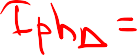 Iph△ =